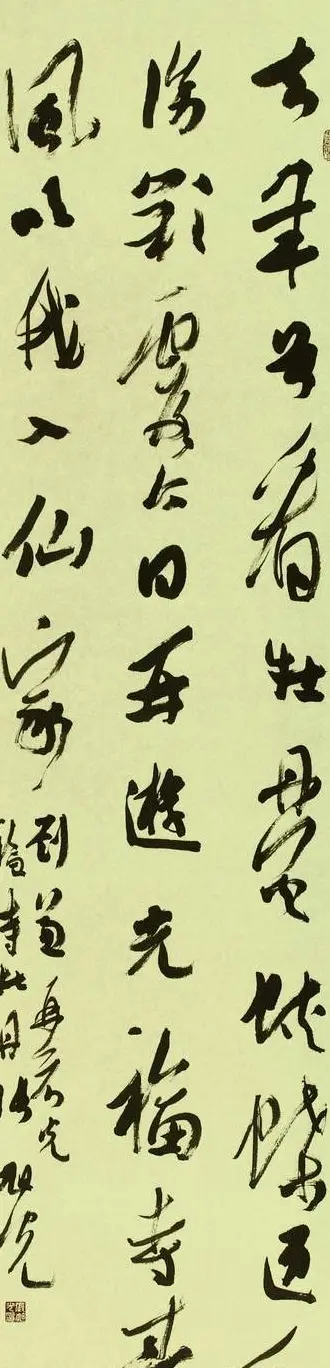 去年曾看牡丹花蛱蝶迎
傍彩霞今日再遊光福寺春
風吹我入仙家
劉兼再看光
福寺牡丹張旭光